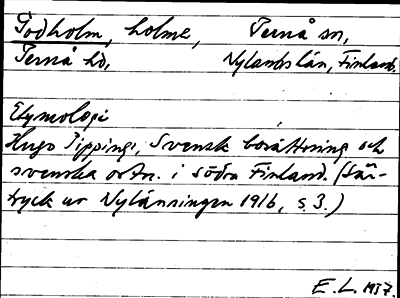 Todholm, holme, Pernå sn,
Pernå hd, Nylands län, Finland.
Etymologi
Hugo Pipping, Svensk bosättning och
svenska ortn. i södra Finland. (Sär-
tryck ur Nylänningen 1916, s. 3.)
E. L. 1917.